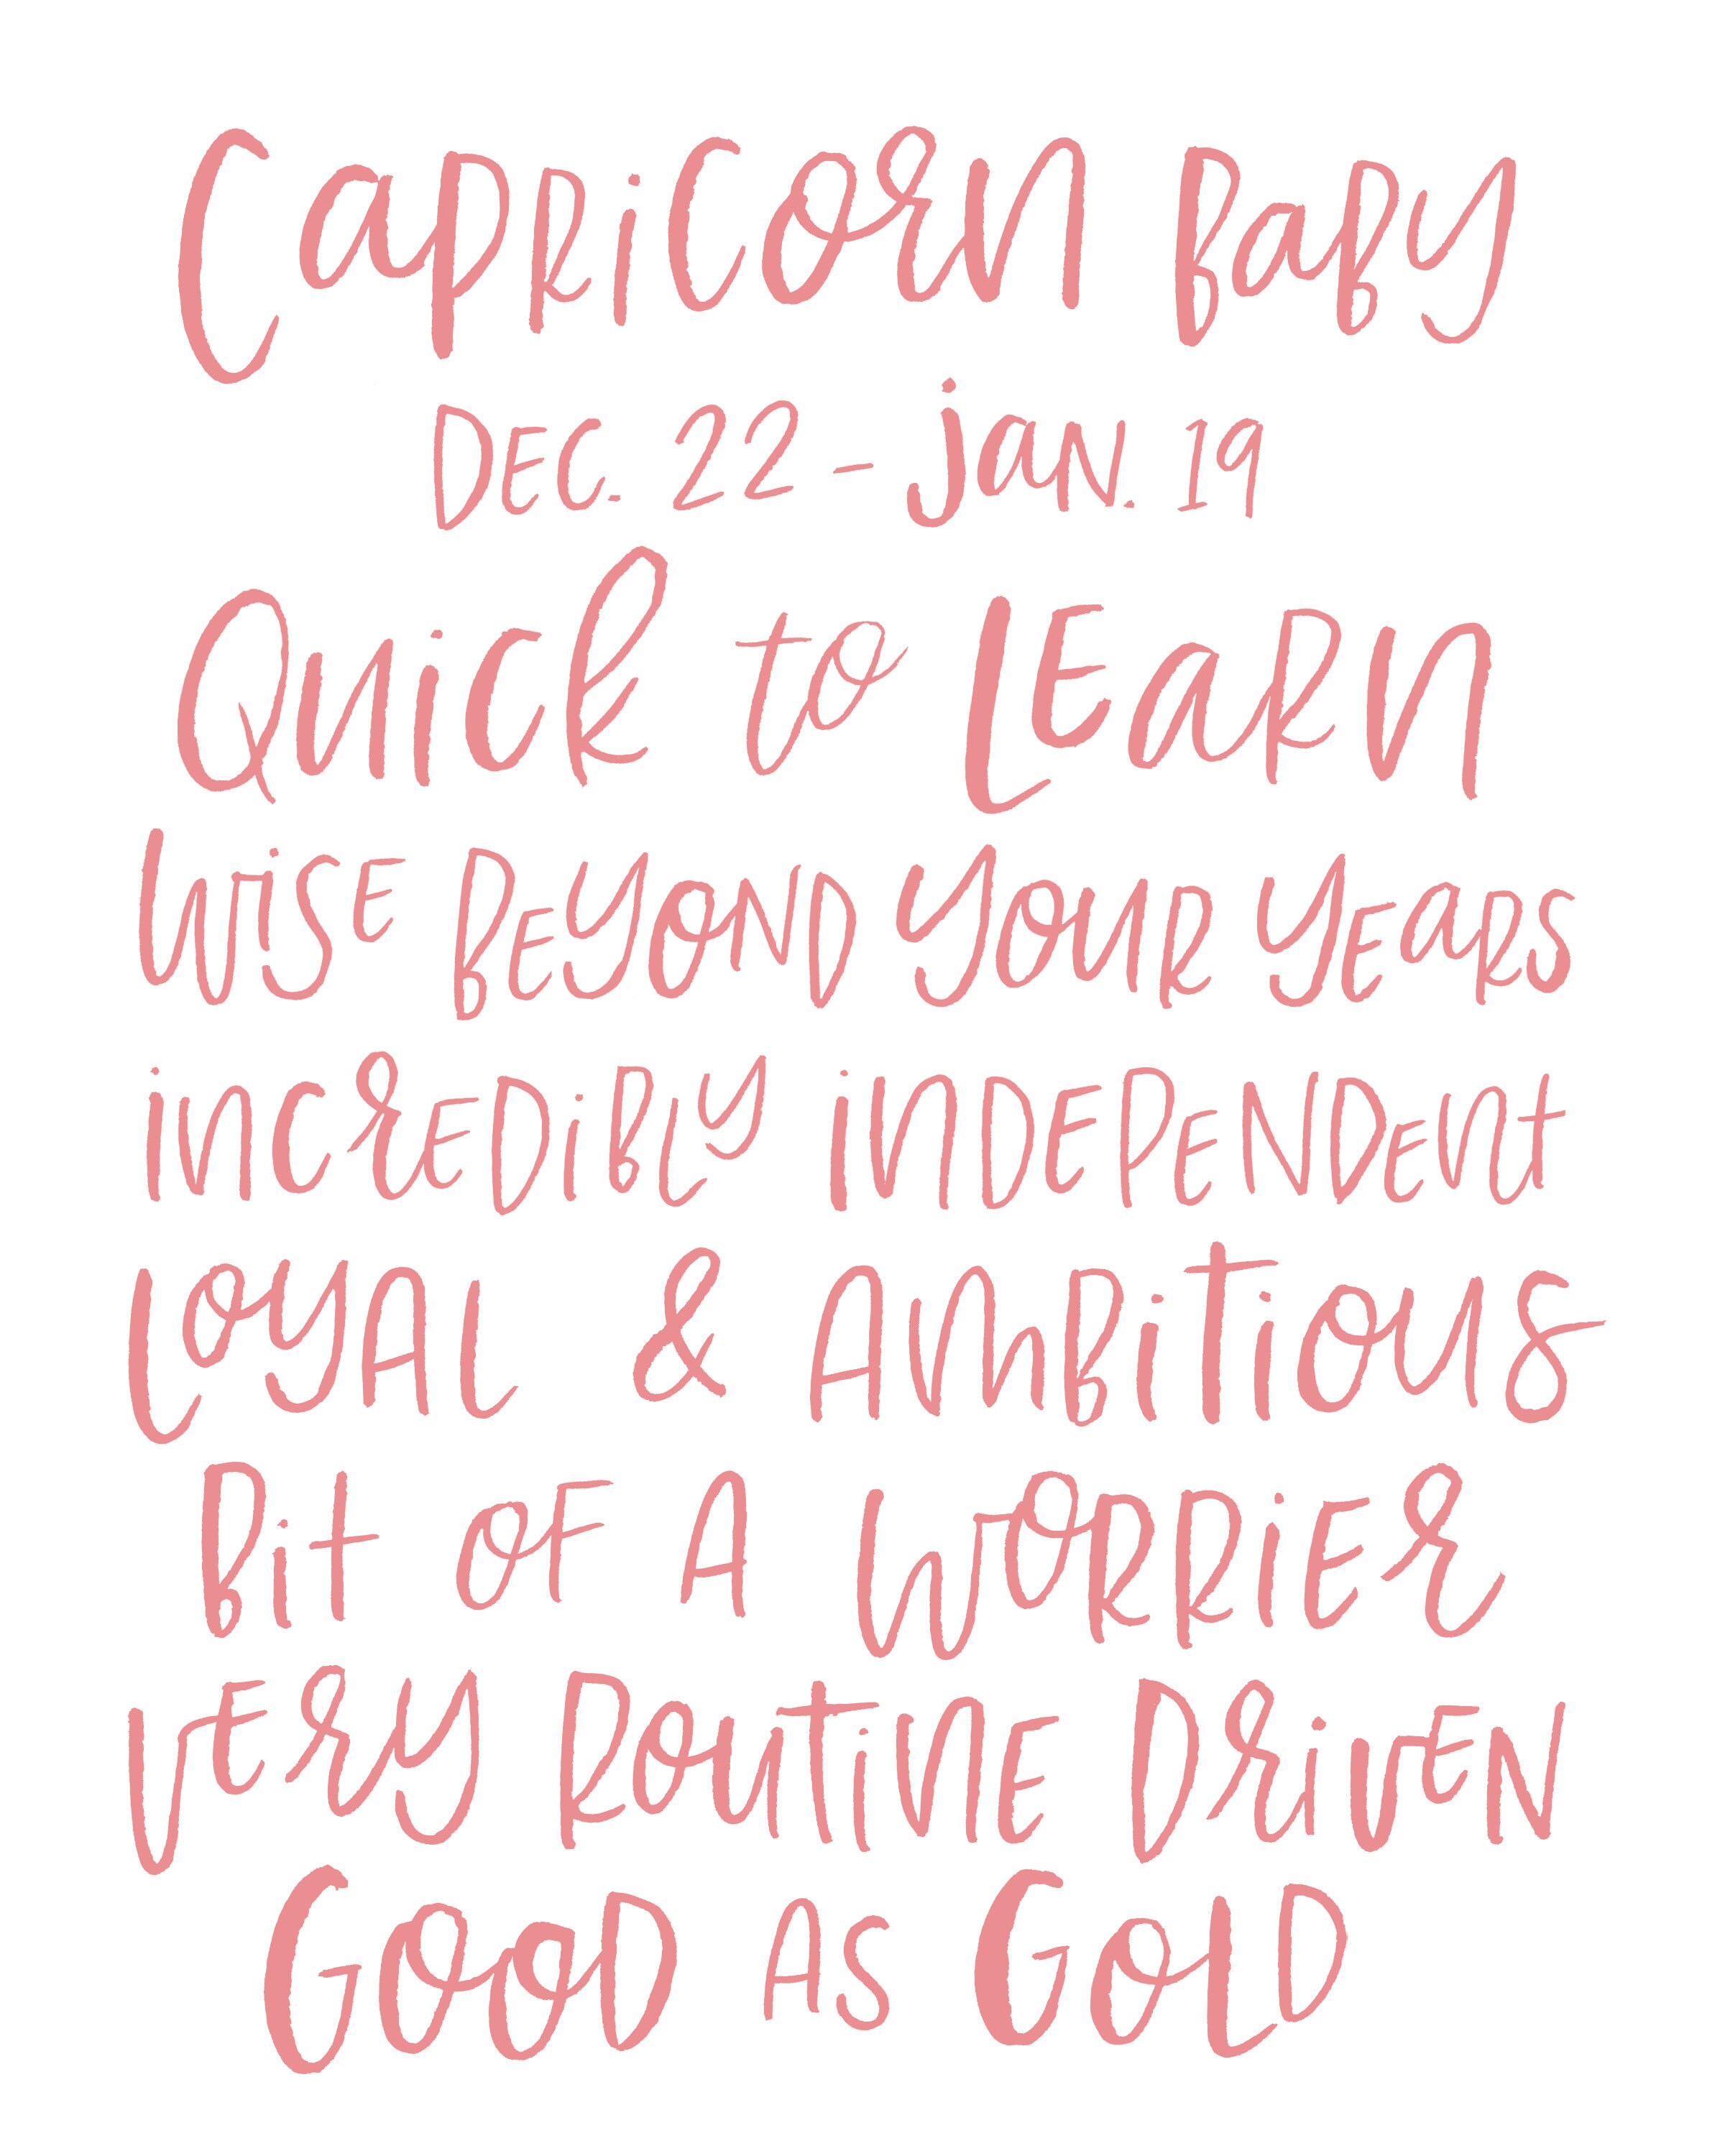 Capricorn Baby
Dec. 22 - Jan. 19
Quick to Learn
Wise Beyond Your Years
Incredibly Independent
Loyal & Ambitious
Bit of A Worrier
Very Routine Driven
Good as Gold